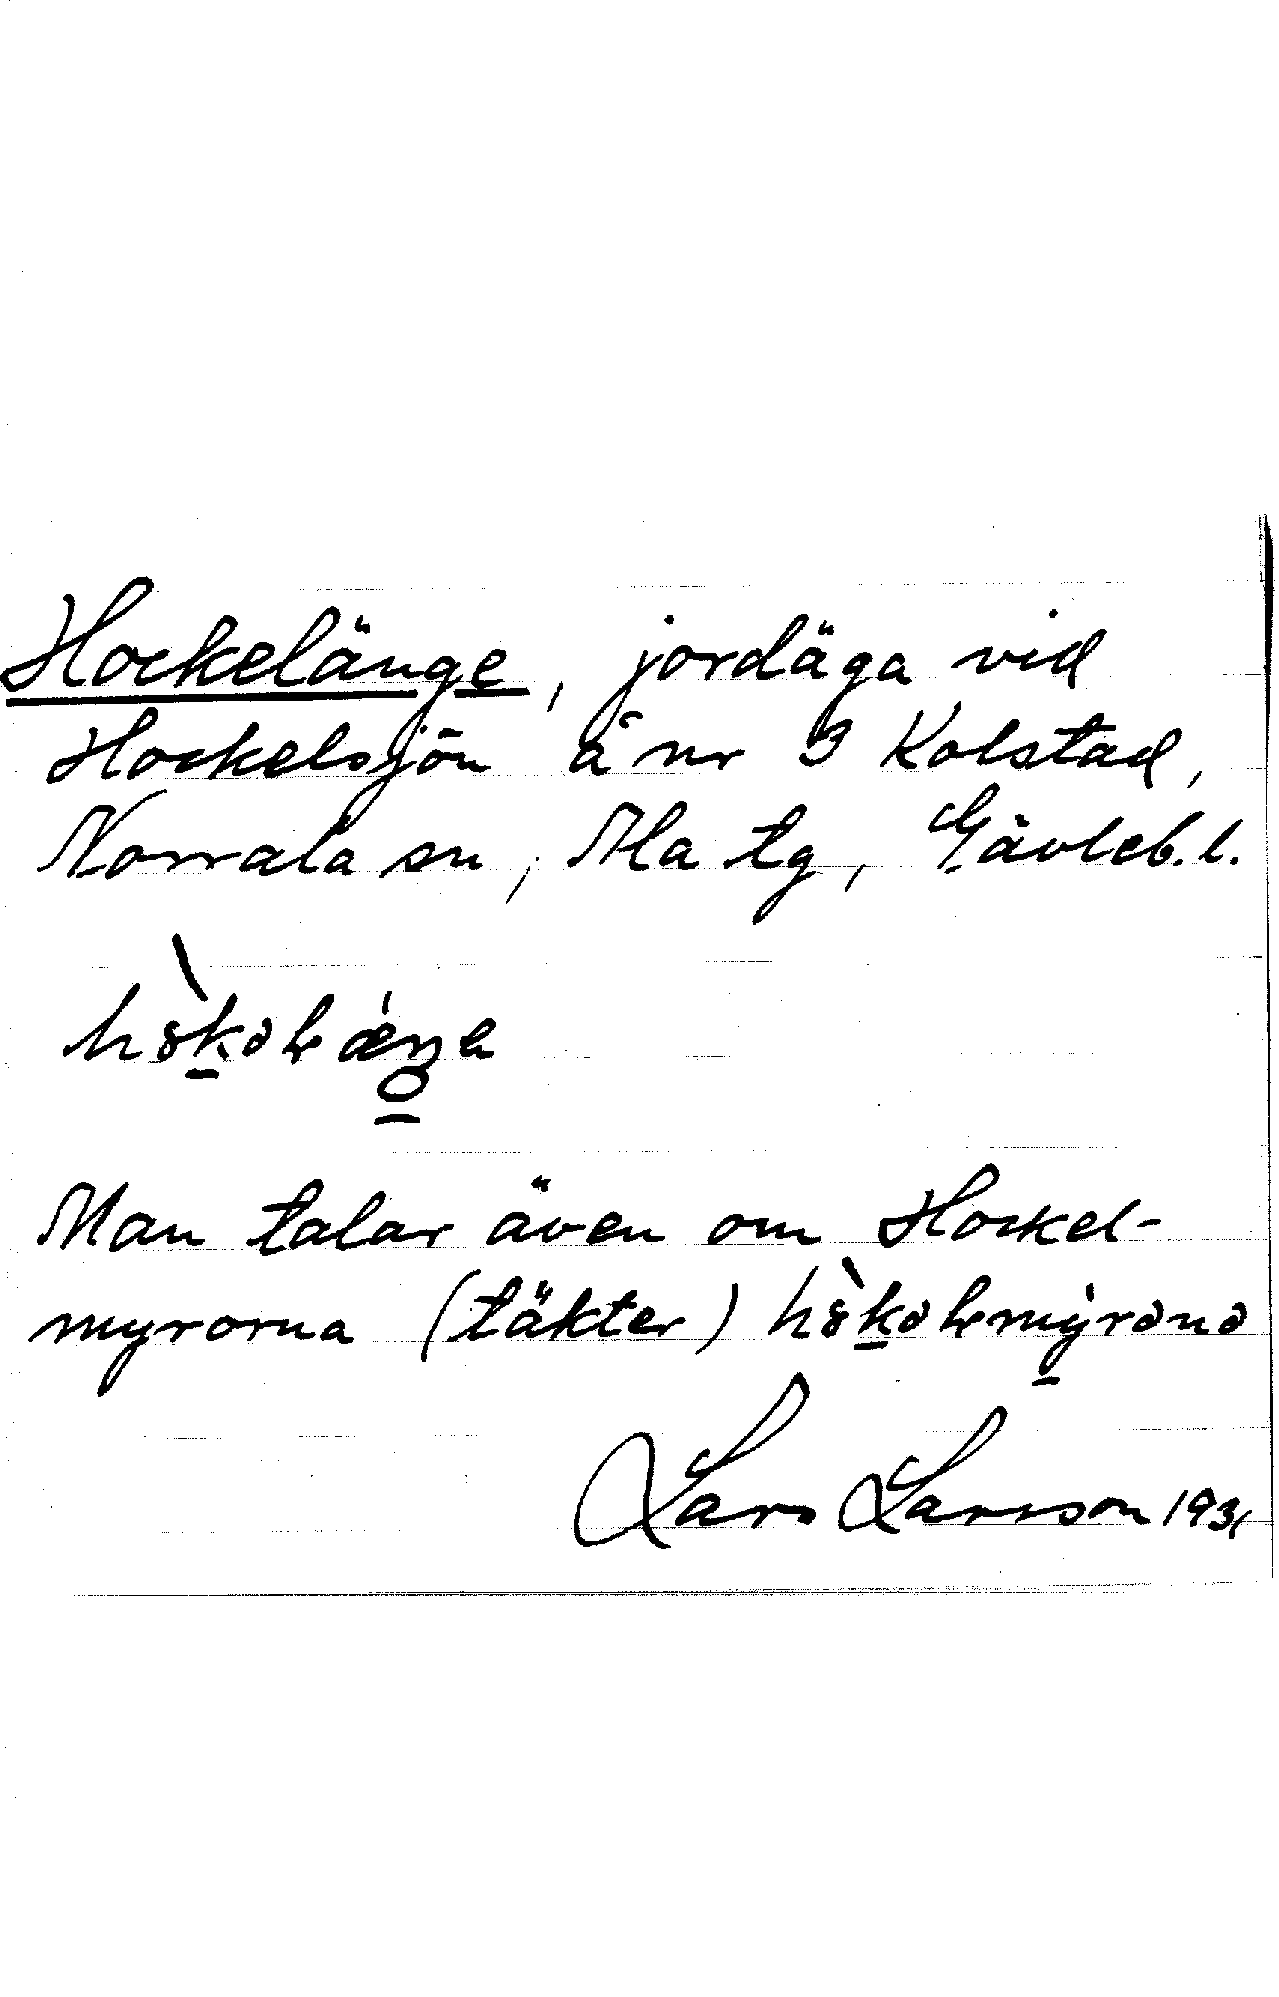 Hockelänge, jordäga vid
Hockelsjön å nr 3 Kolstad,
Norrala sn, Ala tg, Gävleb.l.
Man talar även om Hockel-
myrorna (täkter)
Lars Larsson 1931